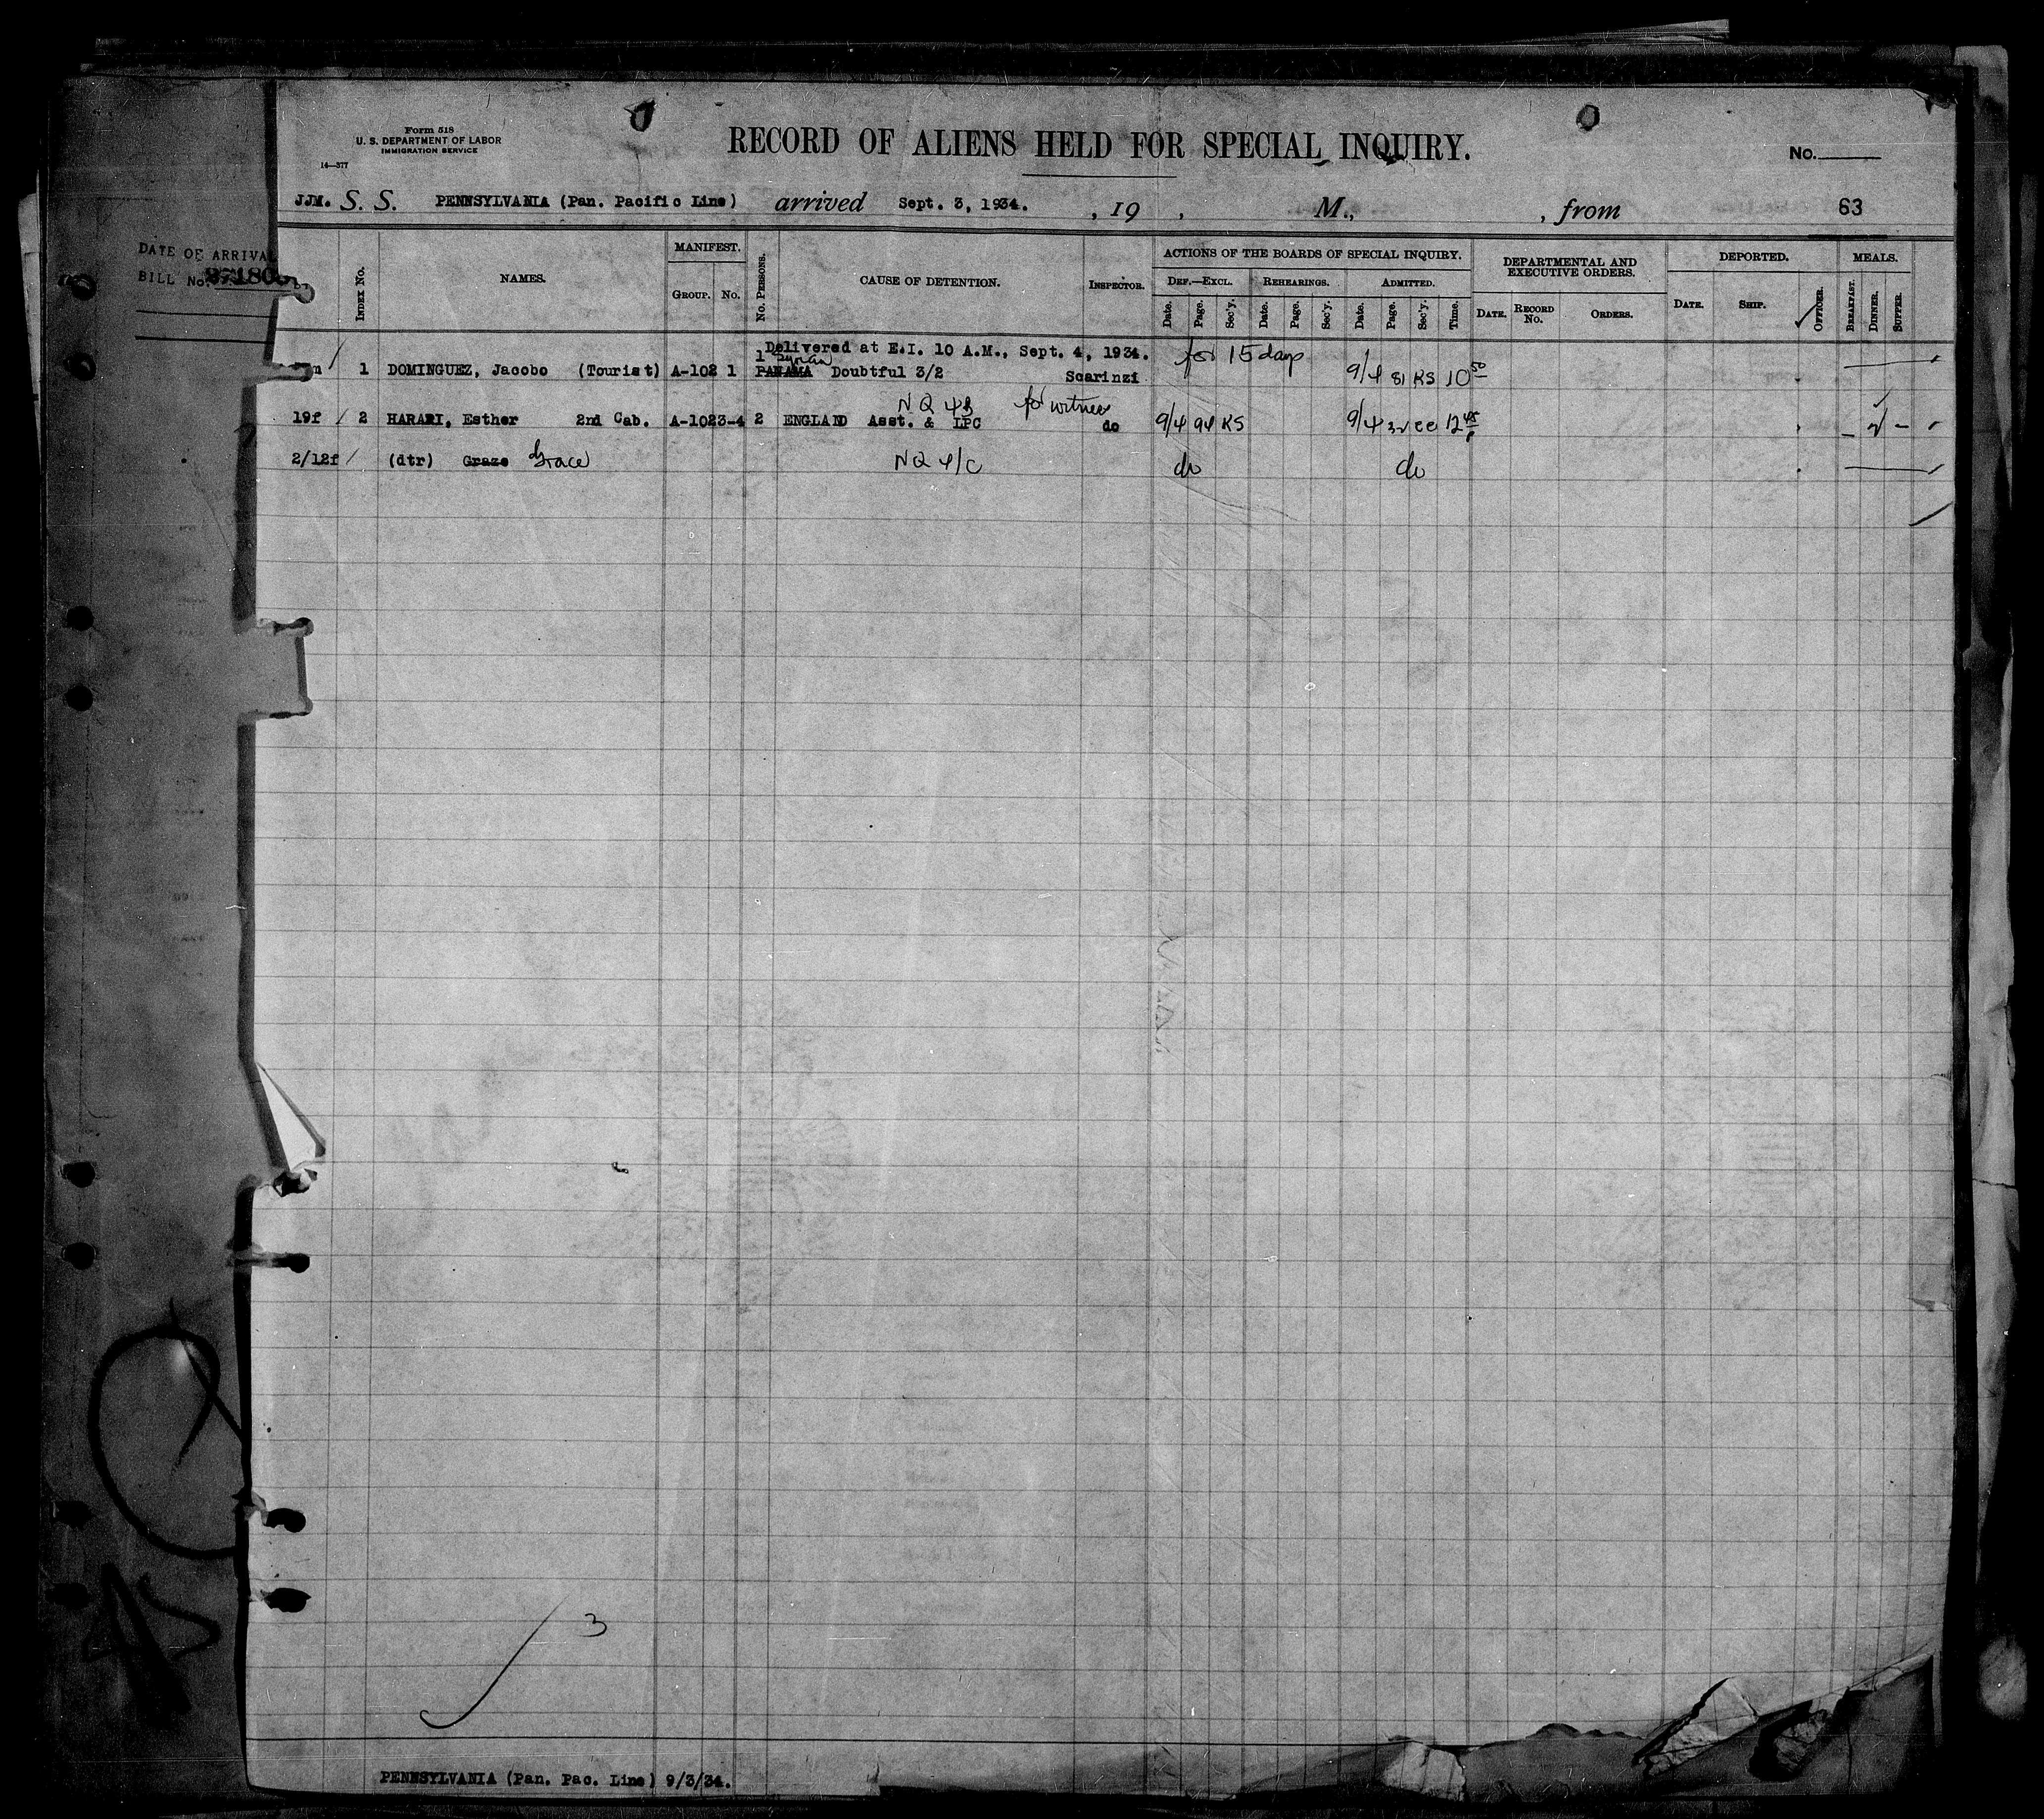 Form 518
U. S. DEPARTMENT OF LABOR
IMMIGRATION SERVICE
14—377
RECORD OF ALIENS HELD FOR SPECIAL INQUIRY.
No.
JJM. S. S. PENNSYLVANIA (Pan. Pacific Line) arrived Sept. 3, 1934. , 19 , M., , from 63
DATE OF ARRIVAL
BILL No.
INDEX No.
NAMES.
MANIFEST.
GROUP. No.
No. PERSONS.
CAUSE OF DETENTION.
INSPECTOR.
ACTIONS OF THE BOARDS OF SPECIAL INQUIRY.
DEF.—EXCL. REHEARINGS. ADMITTED.
Date. Page. Sec'y. Date. Page. Sec'y. Date. Page. Sec'y. Time.
DEPARTMENTAL AND EXECUTIVE ORDERS.
DATE. RECORD No. ORDERS.
DEPORTED.
DATE. SHIP. OFFICER.
MEALS.
BREAKFAST. DINNER. SUPPER.
Delivered at E.I. 10 A.M., Sept. 4, 1934. for 15 days
1 Syrian
1 DOMINGUEZ, Jacobo (Tourist) A-102 1 PANAMA Doubtful 3/2 Scarinzi 9/4 81 KS 10 50
NQ 4B for witness
19f 2 HARARI, Esther 2nd Cab. A-102 3-4 2 ENGLAND Asst. & LPC do 9/4 94 KS 9/4 12 45
2/12f (dtr) Graze Grace NQ 4/C do do
3
PENNSYLVANIA (Pan. Pac. Line) 9/3/34.